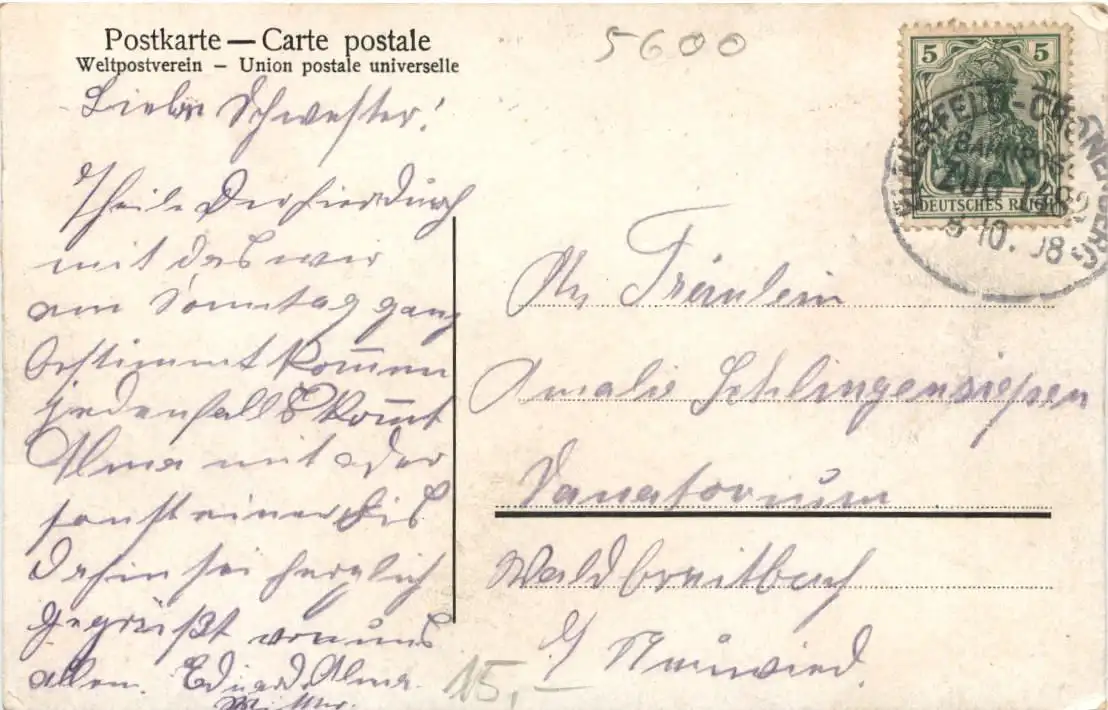 Postkarte — Carte postale
Weltpostverein – Union postale universelle
5600
5 5
DEUTSCHES REICH
ELBERFELD-CRONENBERG
BAHNPOST
ZUG 1482
5 10. 08
Liebe Schwester!
Theile Dir hierdurch
mit das wir
am Sonntag ganz
bestimmt kom̅en
jedenfalls kom̅t
Alma mit oder
sonst einer bis
dahin sei herzlich
gegrüßt von uns
allen. Eduard, Alma
Mutter.
An Fräulein
Amalie Schlingensiepen
Sanatorium
Waldbreitbach
b/ Neuwied.
15,–